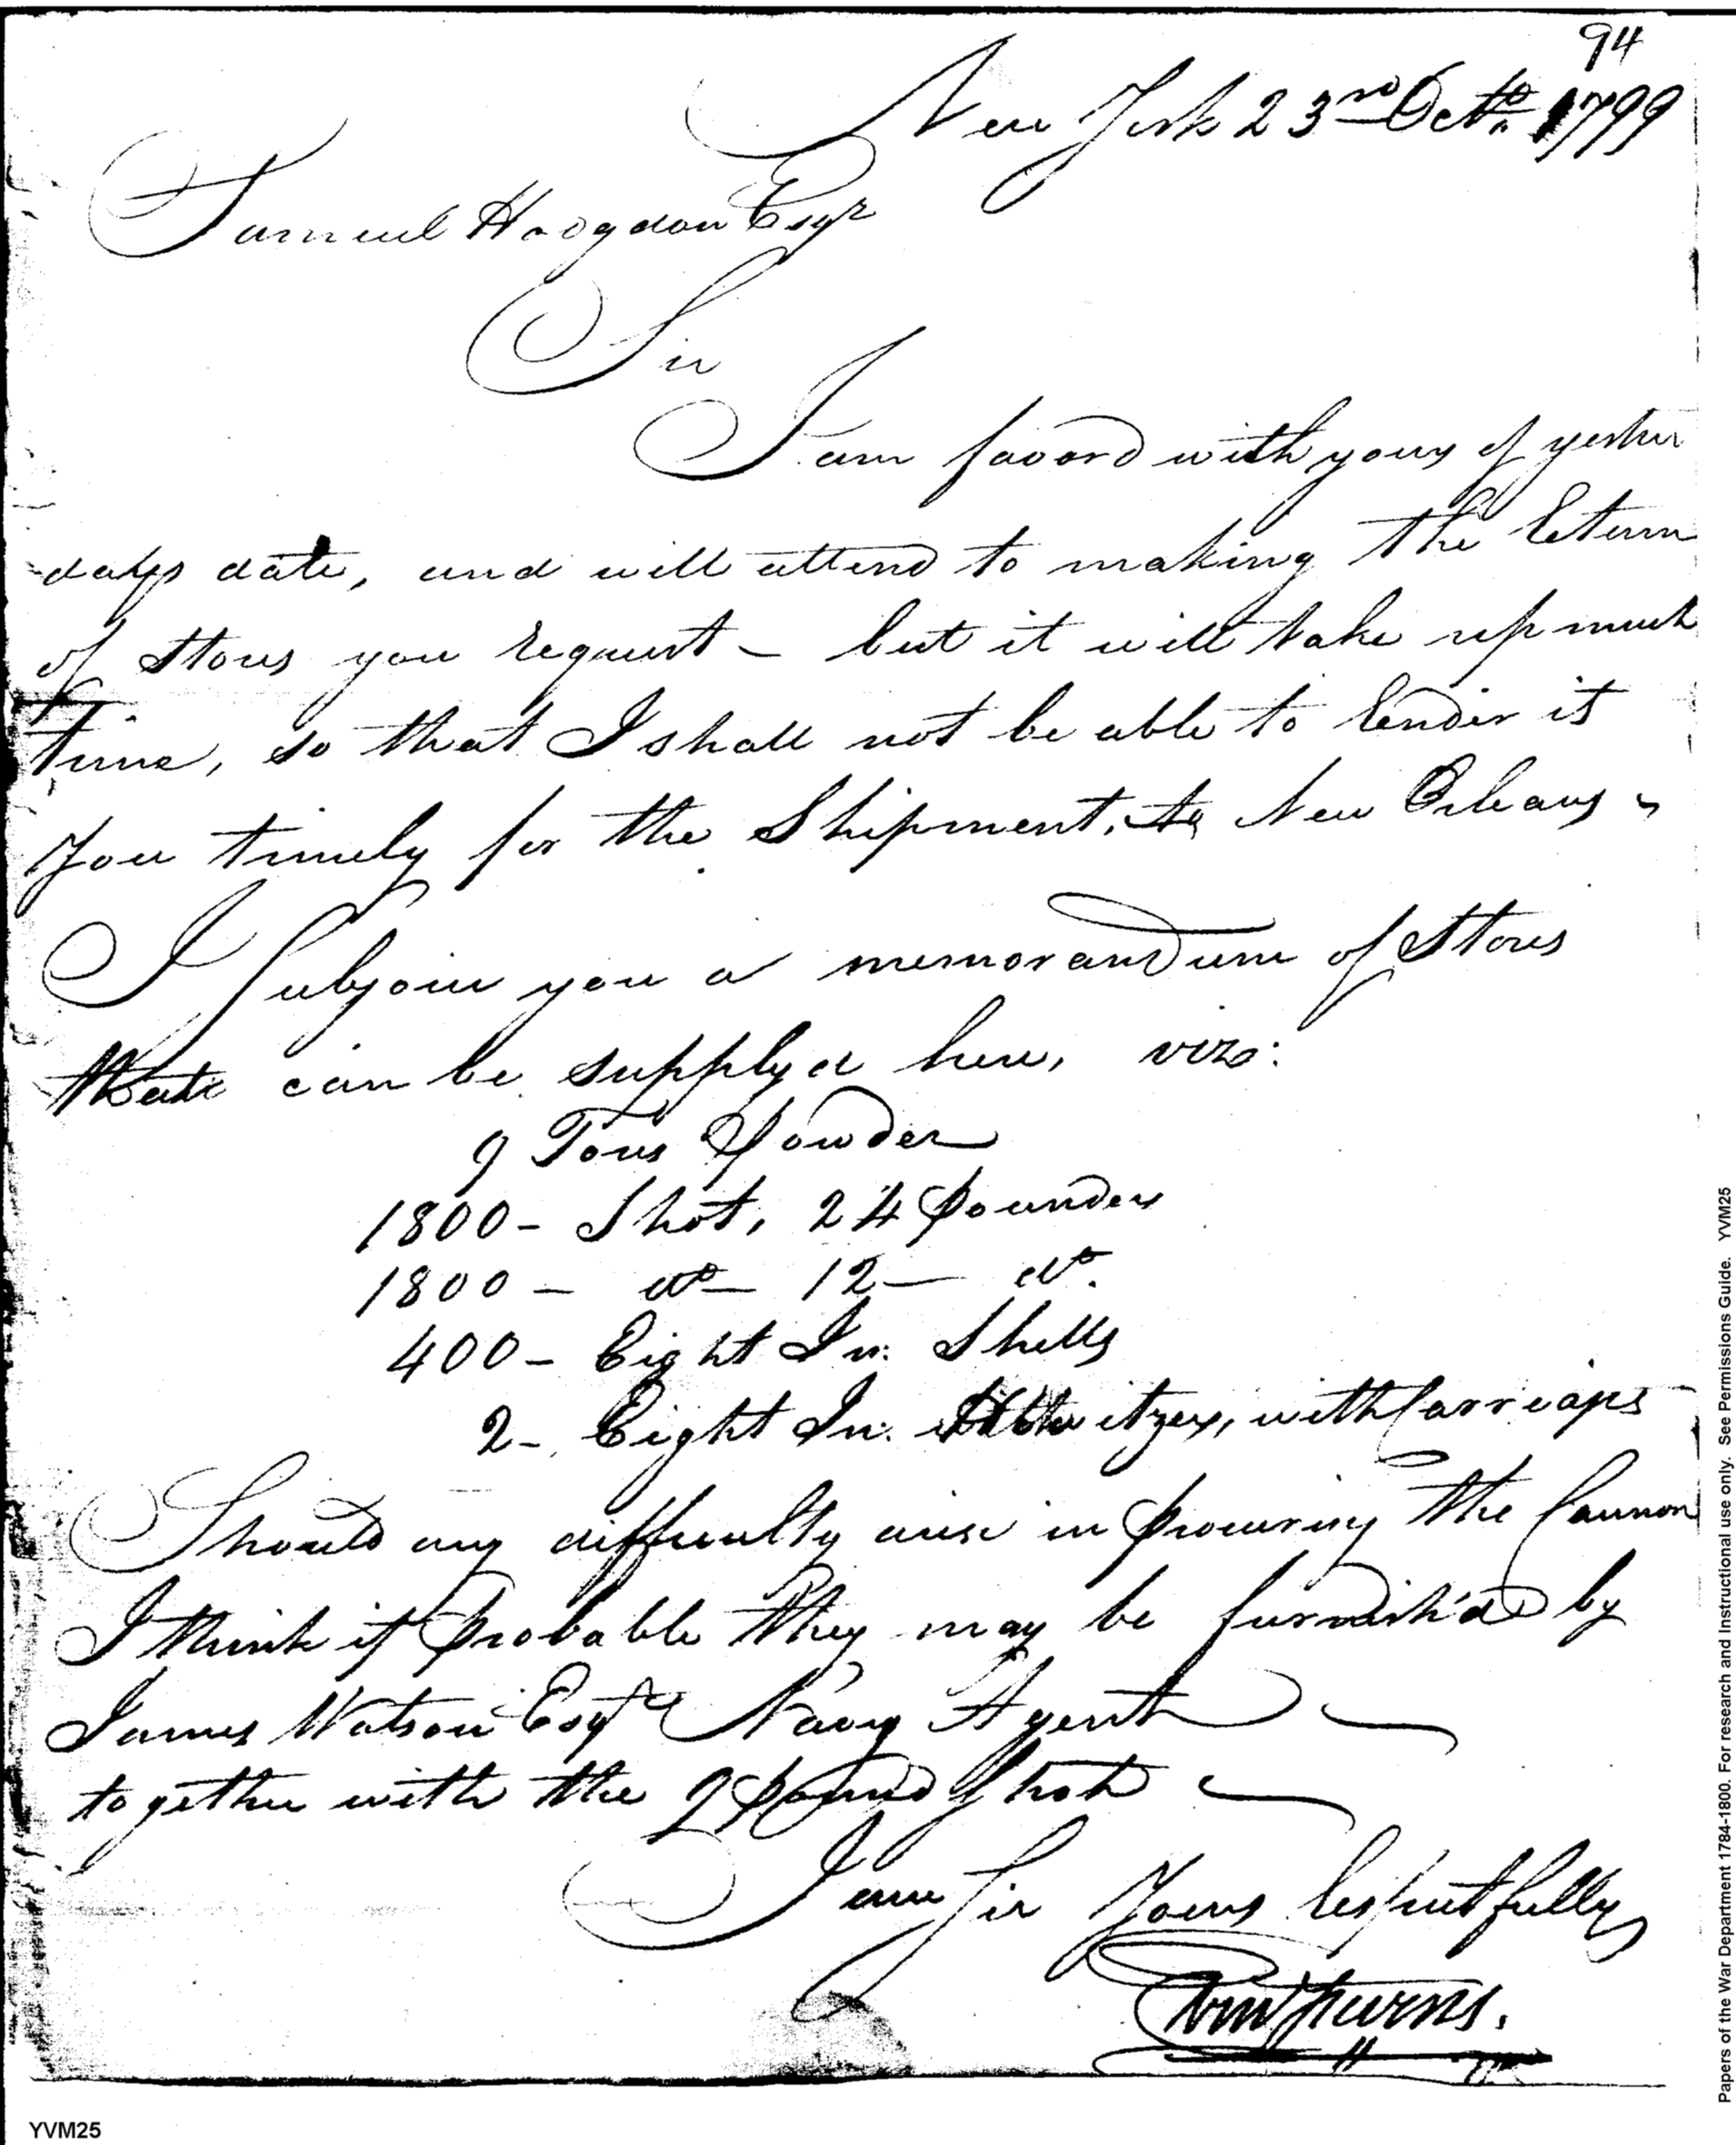 94
New York 23rd Octo. 1799
Samuel Hodgdon Esqr
Sir
I am favord with yours of yester
days date, and will attend to making the Return
of Stores you request - but it will take up much
time, so that I shall not be able to render it
you timely for the Shipment, to New Orleans -
I Subjoin you a memorandum of Stores
that can be supplyd here, viz:
9 Tons Powder
1800 - Shot, 24 pounders
1800 - do - 12 - do.
400 - Eight In: Shells
2 - Eight In: Howitzers, with Carriages
Should any difficulty arise in procuring the Cannon
I think it probable they may be furnish'd by
James Watson Esqr Navy Agent
together with the 9 pound Shot
I am Sir Yours respectfully
YVM25
Papers of the War Department 1784-1800. For research and Instructional use only. See Permissions Guide. YVM25